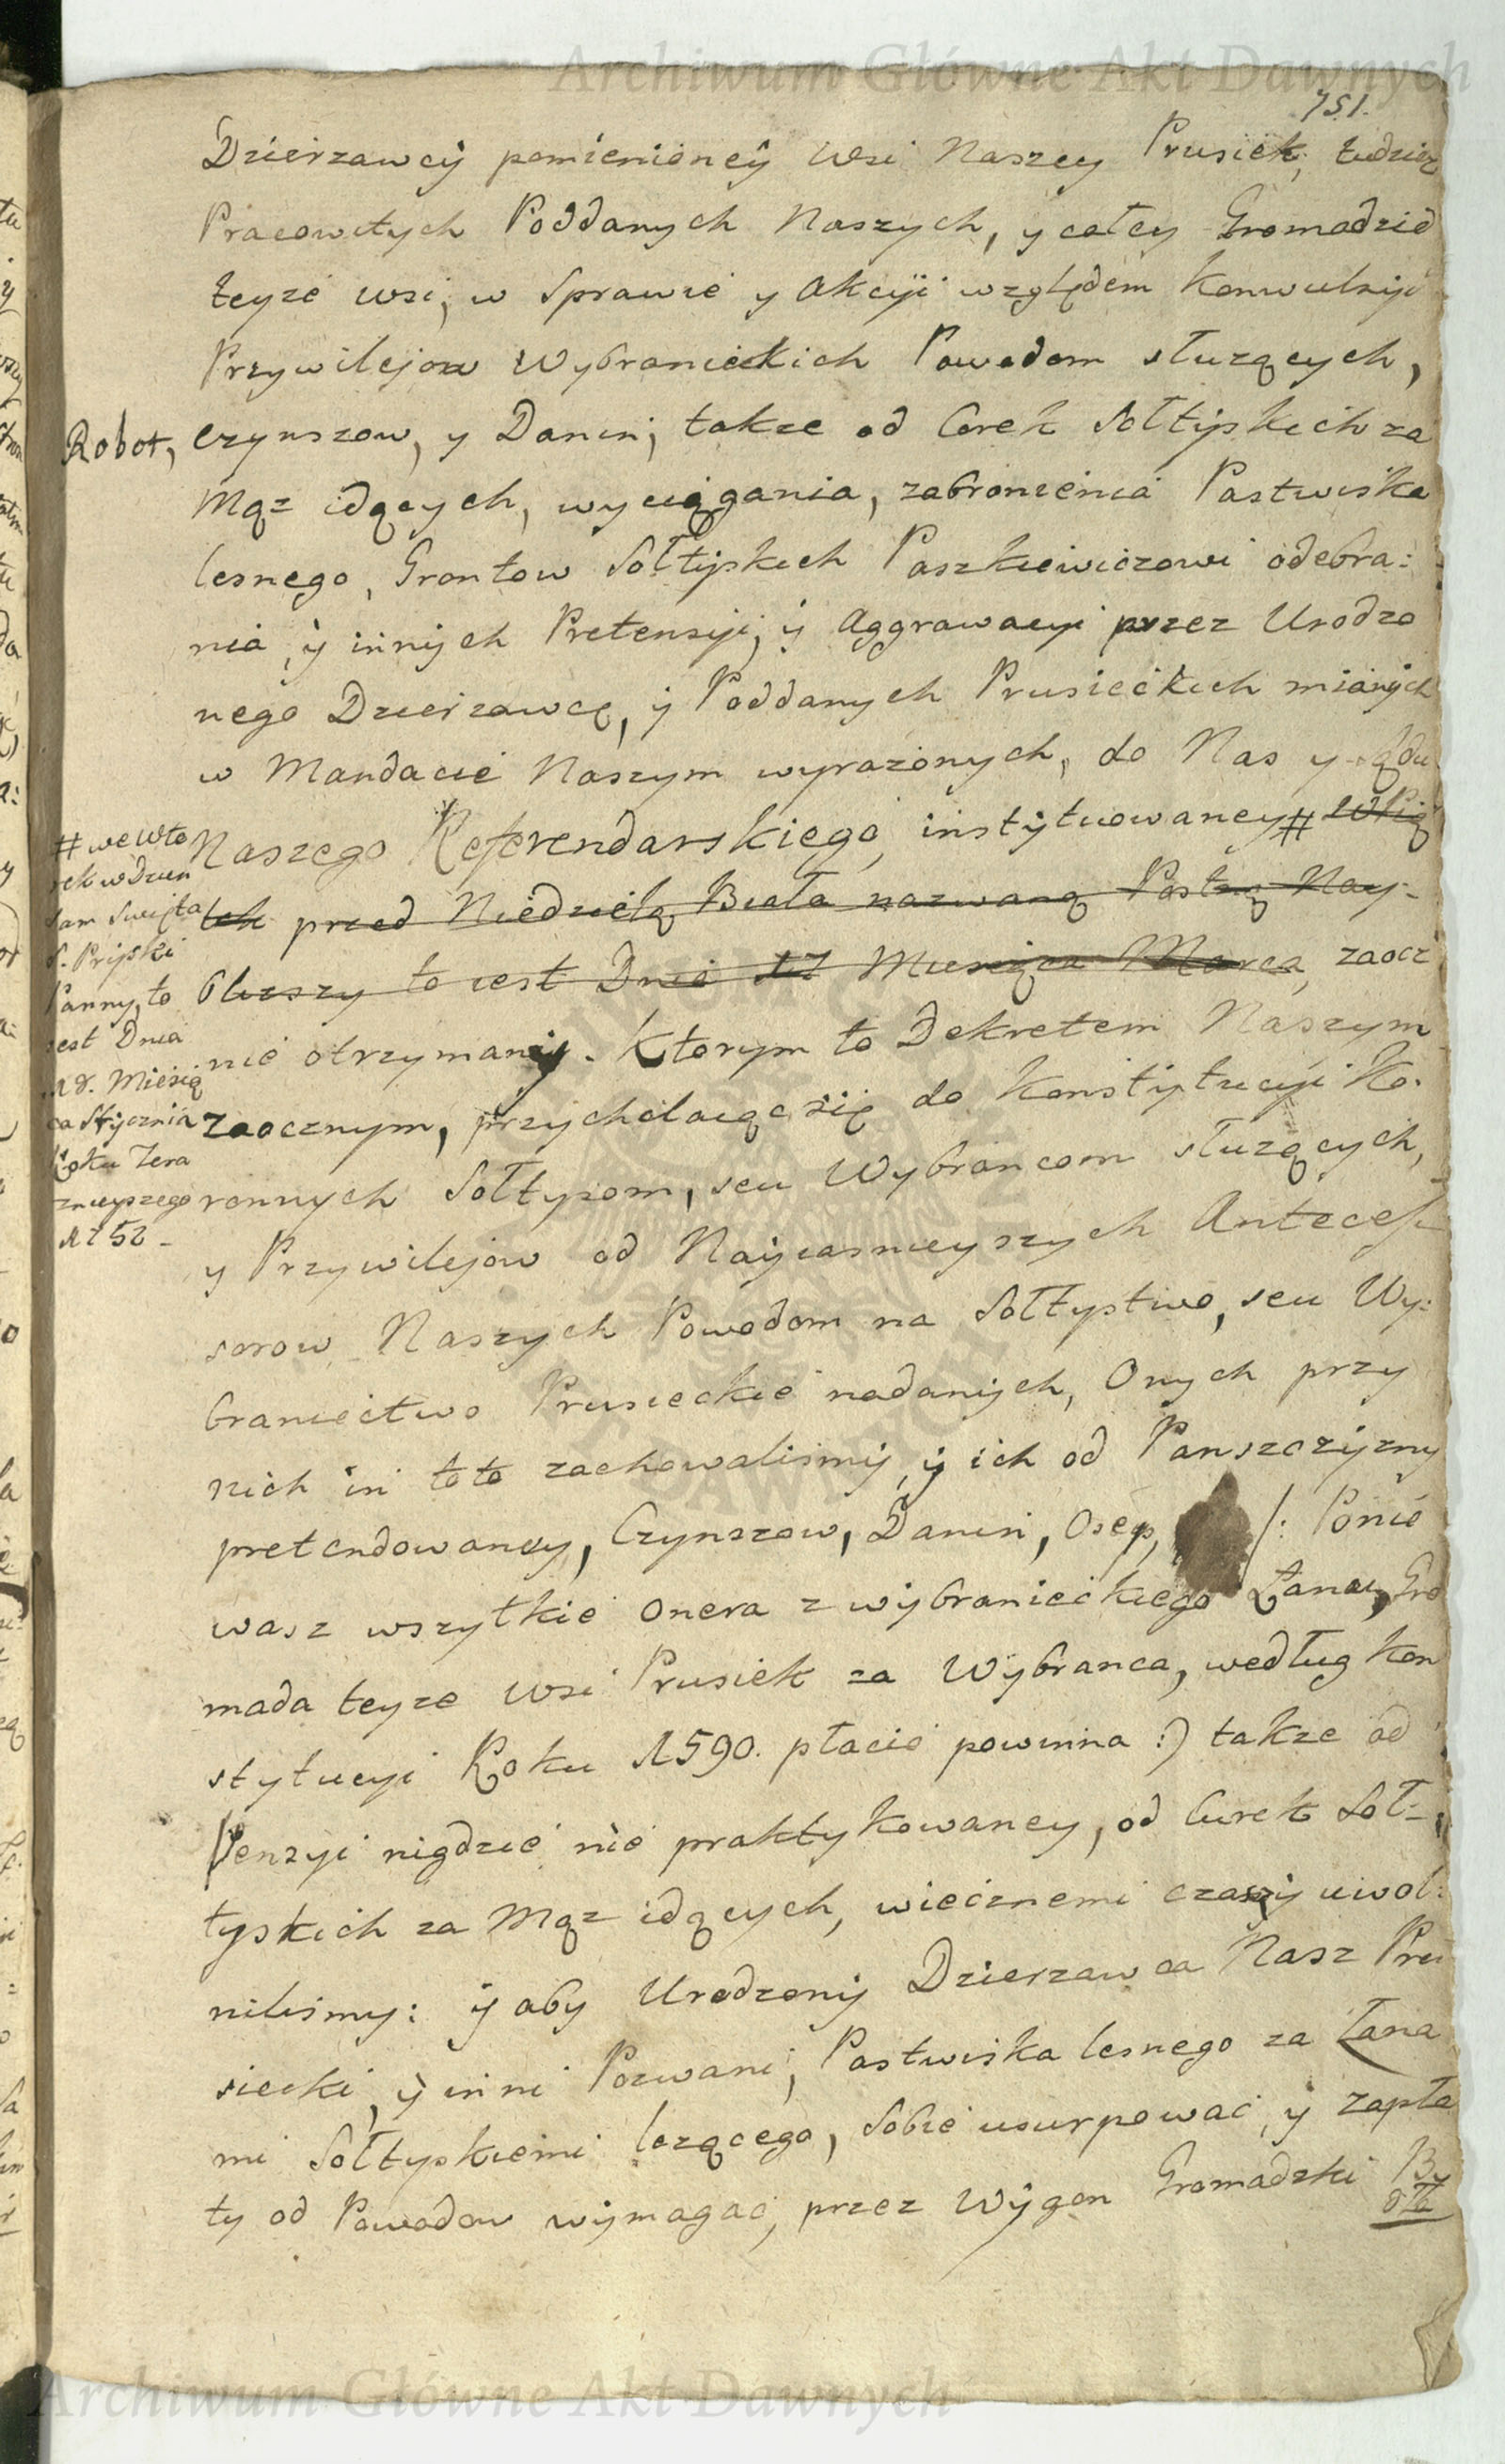 Archiwum Główne Akt Dawnych
751.
Dzierzawcÿ pomienionéÿ Wsi Naszey Prusiek, tudziez
Pracowitych Poddanych Naszych, y całey Gromadzie
teyze wsi, w Sprawie y Akcÿi względem konwulsÿi
Przywilejow Wybranieckich Powodom słuzących,
Robot, czynszow, y Danin, takze od Corek Sołtÿskich za
Mąz idących, wyciągania, zabronienia Pastwiska
lesnego, Grontow Sołtÿskich Paszkiewiczowi odebra:
nia, ÿ innÿch Pretensÿi, ÿ Aggrawacyi przez Urodzo
nego Dzierzawcę, ÿ Poddanych Prusieckich mianÿch
w Mandacie Naszym wyrazonych, do Nas y Sądu
Naszego Referendarskiego, instÿtuowaney # w Pią
tek przed Niedzielą Biała nazwaną Postną Nay-
Blizszy to iest Dnia 17 Miesiąca Marca, zaocz
# we Wto
rek w Dzien
sam Swięta
S. Prÿski
Panny, to
iest Dnia
18. Miesią
ca Stÿcznia
Roku Tera
znieyszego
1752 -
nie otrzymany. Ktorym to Dekretem Naszym
Zaocznym, przychÿlaiąc się do Konstÿtucÿi Ko.
ronnych Sołtysom, seu Wybrancom słuzących,
y Przywilejow od Naÿiasnieyszych Anteces
sorow Naszych Powodom na Sołtystwo, seu Wy:
braniectwo Prusieckie nadanÿch, Onych przy
nich in toto zachowalismÿ, ÿ ich od Panszczÿzny
pretendowaney, Czynszow, Danin, Osep, /: Ponie
wasz wszytkie onera z wÿbranieckiego Łanu, Gro
mada teyze Wsi Prusiek za Wÿbranca, według kon
stytucyi Roku 1590. płacić powinna :) takze od
Penzyi nigdzie nie praktykowaney, od Curek Soł:
tyskich za Mąz idących, wiecznemi czasÿ uwol:
nilismy: ÿ aby Urodzonÿ Dzierzawca Nasz Pru
siecki, ÿ inni Pozwani, Pastwiska lesnego za Łana
mi Sołtyskiemi lezącego, Sobie usurpować, ÿ zapła
ty od Powodow wÿmagać, przez Wÿgon Gromadzki By
dła
Archiwum Główne Akt Dawnych